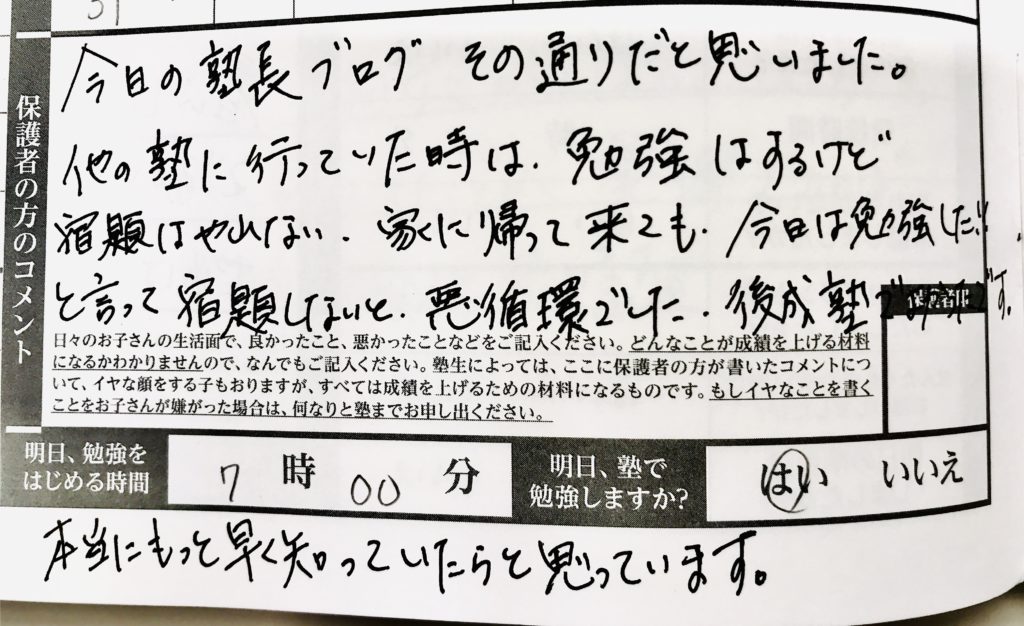 31
保護者の方のコメント
今日の塾長ブログ その通りだと思いました。
他の塾に行っていた時は、勉強はするけど
宿題はやらない、家に帰って来ても、今日は勉強した!!
と言って宿題しないと、悪循環でした、後成塾です。
保護者印
日々のお子さんの生活面で、良かったこと、悪かったことなどをご記入ください。どんなことが成績を上げる材料
になるかわかりませんので、なんでもご記入ください。塾生によっては、ここに保護者の方が書いたコメントにつ
いて、イヤな顔をする子もおりますが、すべては成績を上げるための材料になるものです。もしイヤなことを書く
ことをお子さんが嫌がった場合は、何なりと塾までお申し出ください。
明日、勉強を
はじめる時間
7時00分
明日、塾で
勉強しますか?
はい いいえ
本当にもっと早く知っていたらと思っています。